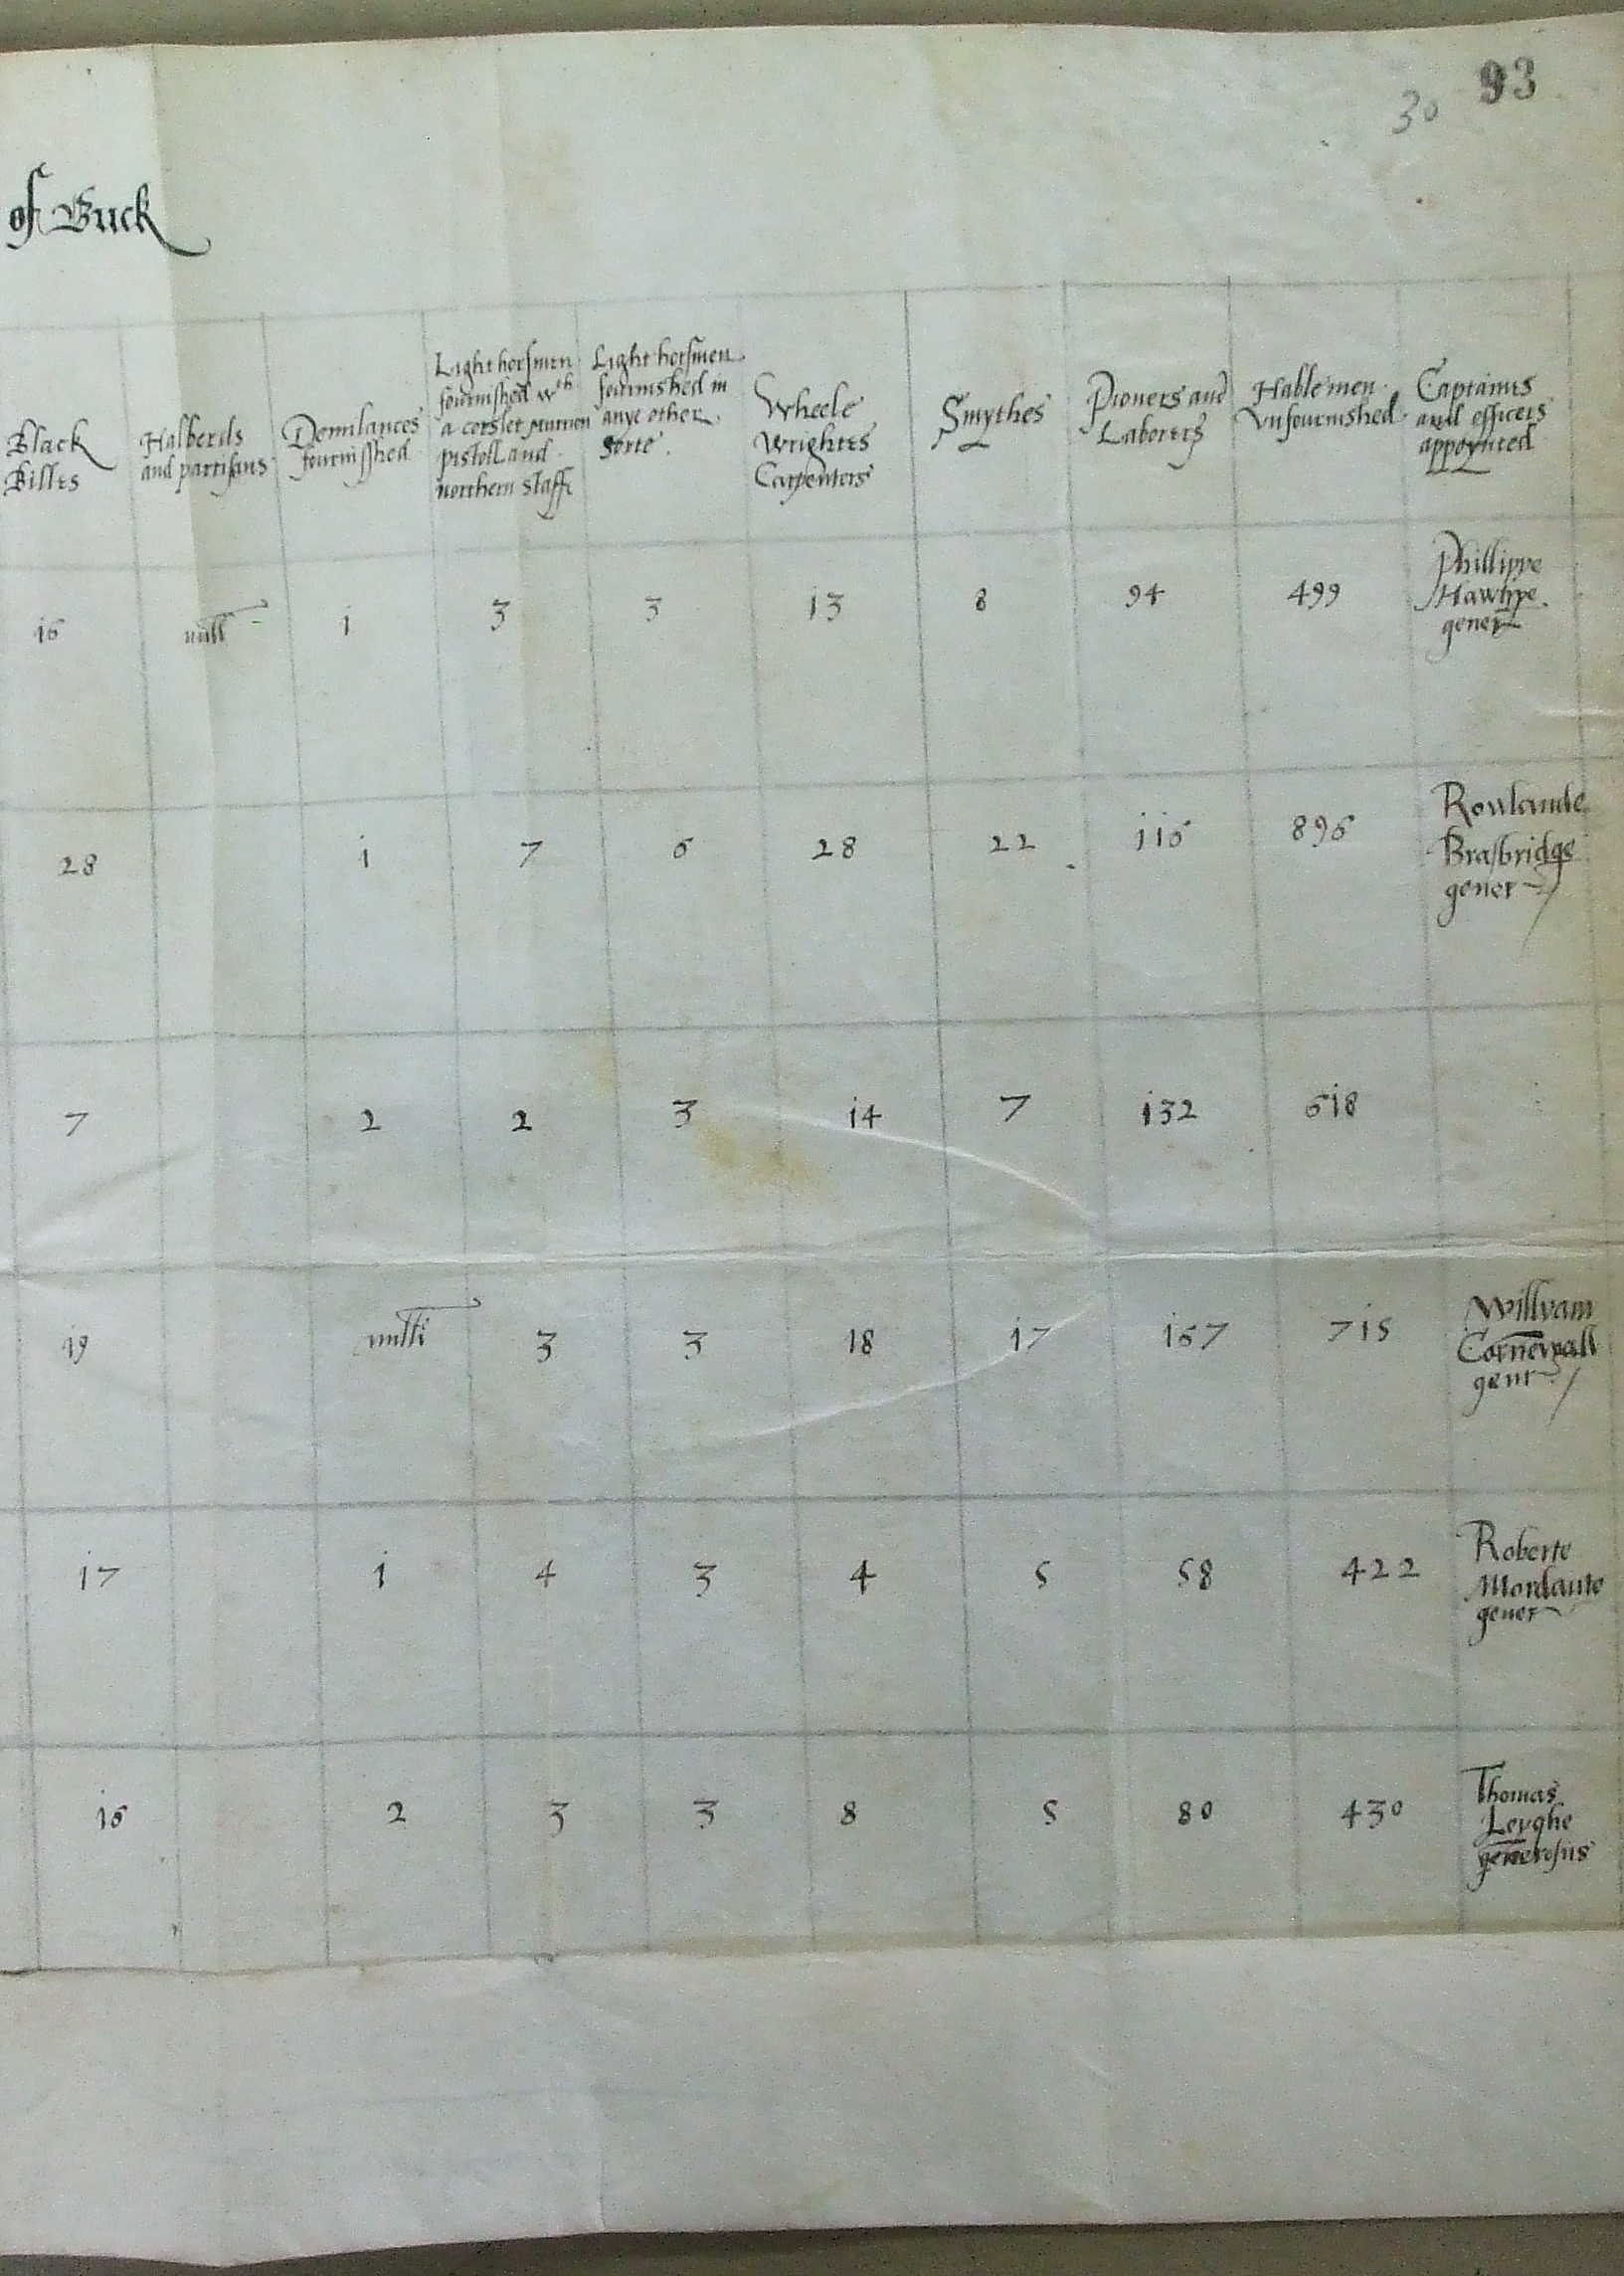 30 93
of Buck
Black
Billes
Halberds
and partisans
Demilances
fournisshed
Light horsmen
fournished wth
a corslet murrion
pistoll and
northern staffe
Light horsmen
fournished in
anye other
sorte.
Wheele
wrightes
Carpenters
Smythes
Pioners and
Laborers
Hable men
vnfournished
Captaines
and officers
appoynted
16 null 1 3 3 13 8 94 499
Phillippe
gener
28 1 7 6 28 22 116 896
Rowlande
Brasbridge
gener
7 2 2 3 14 7 132 618
19 nulli 3 3 18 17 167 715
Willyam
Cornewall
gent
17 1 4 3 4 5 58 422
Roberte
Mordaunte
gener
16 2 3 3 8 5 80 430
Thomas
Leyghe
generosus